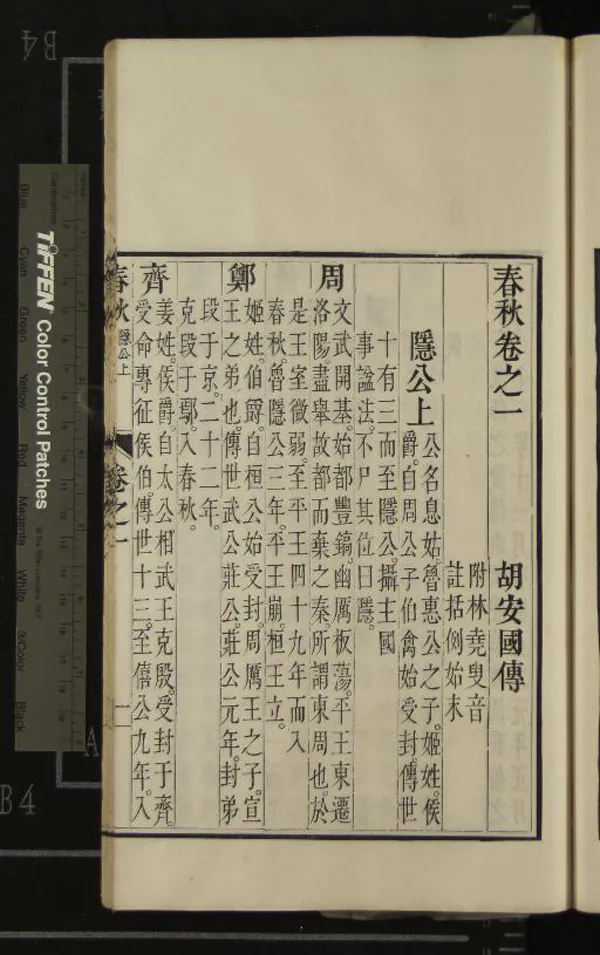 春秋卷之一
胡安國傳
附林堯叟音
註括例始末
隱公上
公名息姑。魯惠公之子。姬姓。侯
爵。自周公子伯禽始受封。傳世
十有三而至隱公。攝主國
事諡法。不尸其位曰隱。
周
文武開基。始都豐鎬。幽厲板蕩。平王東遷
洛陽。盡舉故都而棄之秦。所謂東周也。於
是王室微弱。至平王四十九年而入
春秋。魯隱公三年。平王崩。桓王立。
鄭
姬姓。伯爵。自桓公始受封。周厲王之子。宣
王之弟也。傳世武公莊公。莊公元年。封弟
段于京。二十二年。
克段于鄢。入春秋。
齊
姜姓。侯爵。自太公相武王克殷。受封于齊。
受命專征侯伯。傳世十三。至僖公九年。入
春秋
隱公上
卷之一
一
TIFFEN Color Control Patches
Blue
Cyan
Green
Yellow
Red
Magenta
White
3/Color
Black
B4
A
B4